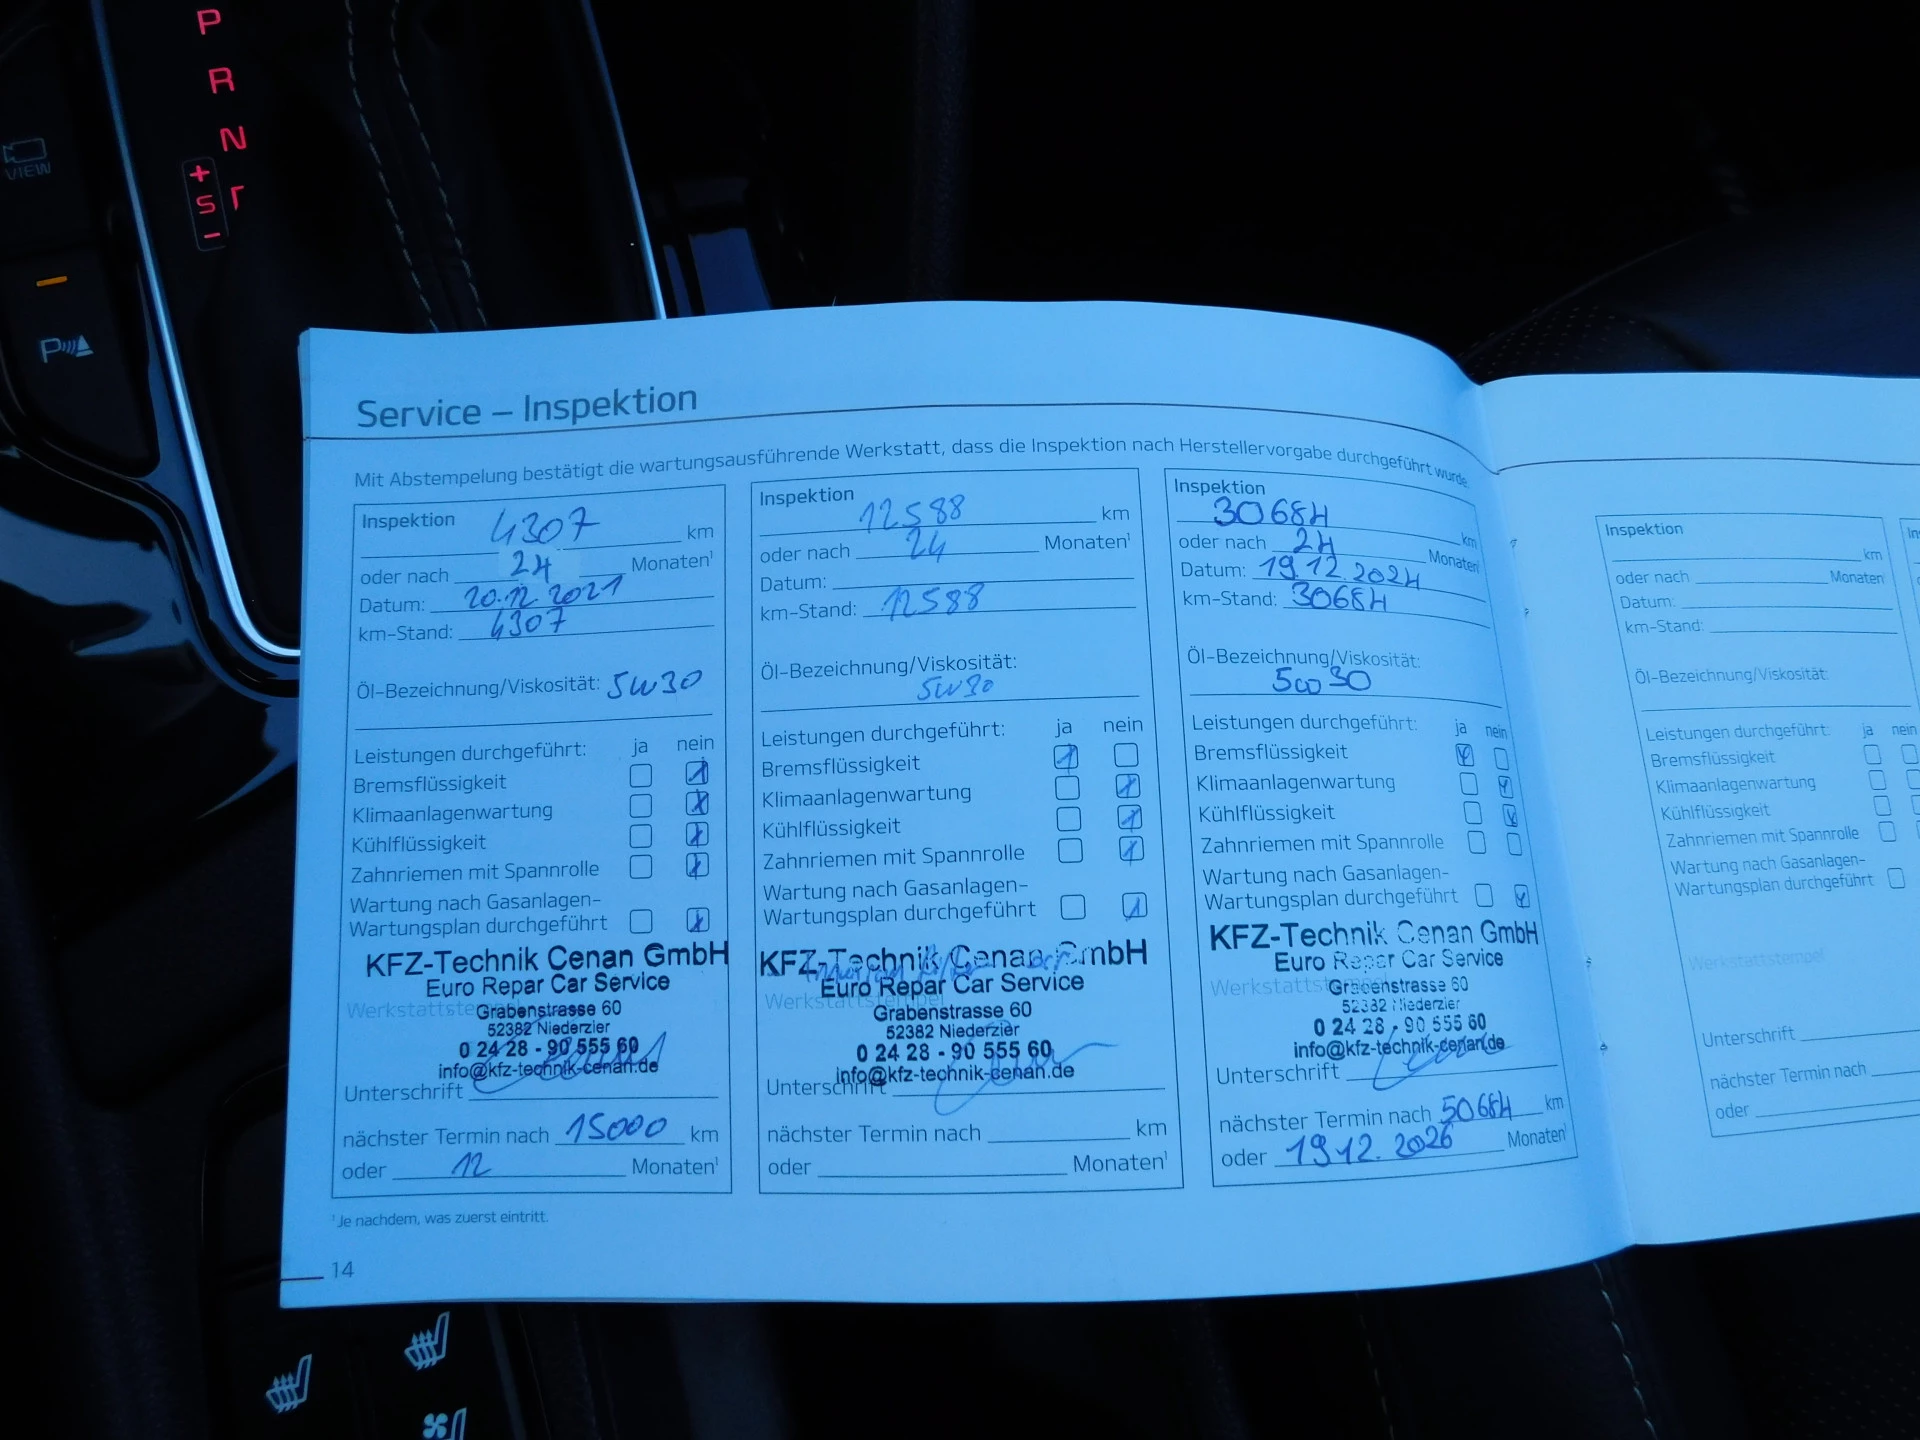 P
R
N
+
S
-
VIEW
P
Service – Inspektion
Mit Abstempelung bestätigt die wartungsausführende Werkstatt, dass die Inspektion nach Herstellervorgabe durchgeführt wurde.
Inspektion 4307 km
oder nach 24 Monaten¹
Datum: 20.12.2021
km-Stand: 4307
Öl-Bezeichnung/Viskosität: 5W30
Leistungen durchgeführt: ja nein
Bremsflüssigkeit
Klimaanlagenwartung
Kühlflüssigkeit
Zahnriemen mit Spannrolle
Wartung nach Gasanlagen-
Wartungsplan durchgeführt
KFZ-Technik Cenan GmbH
Euro Repar Car Service
Grabenstrasse 60
52382 Niederzier
0 24 28 - 90 555 60
info@kfz-technik-cenan.de
Unterschrift
nächster Termin nach 15000 km
oder 12 Monaten¹
Inspektion 12588 km
oder nach 24 Monaten¹
Datum:
km-Stand: 12588
Öl-Bezeichnung/Viskosität:
5W30
Leistungen durchgeführt: ja nein
Bremsflüssigkeit
Klimaanlagenwartung
Kühlflüssigkeit
Zahnriemen mit Spannrolle
Wartung nach Gasanlagen-
Wartungsplan durchgeführt
KFZ-Technik Cenan GmbH
Euro Repar Car Service
Werkstattstempel
Grabenstrasse 60
52382 Niederzier
0 24 28 - 90 555 60
info@kfz-technik-cenan.de
Unterschrift
nächster Termin nach km
oder Monaten¹
Inspektion
30684 km
oder nach 24 Monaten¹
Datum: 19.12.2024
km-Stand: 30684
Öl-Bezeichnung/Viskosität:
5W30
Leistungen durchgeführt: ja nein
Bremsflüssigkeit
Klimaanlagenwartung
Kühlflüssigkeit
Zahnriemen mit Spannrolle
Wartung nach Gasanlagen-
Wartungsplan durchgeführt
KFZ-Technik Cenan GmbH
Euro Repar Car Service
Grabenstrasse 60
52382 Niederzier
0 24 28 - 90 555 60
info@kfz-technik-cenan.de
Unterschrift
nächster Termin nach 50684 km
oder 19.12.2026 Monaten¹
¹Je nachdem, was zuerst eintritt.
14
Inspektion
km
oder nach Monaten¹
Datum:
km-Stand:
Öl-Bezeichnung/Viskosität:
Leistungen durchgeführt: ja nein
Bremsflüssigkeit
Klimaanlagenwartung
Kühlflüssigkeit
Zahnriemen mit Spannrolle
Wartung nach Gasanlagen-
Wartungsplan durchgeführt
Werkstattstempel
Unterschrift
nächster Termin nach
oder
In